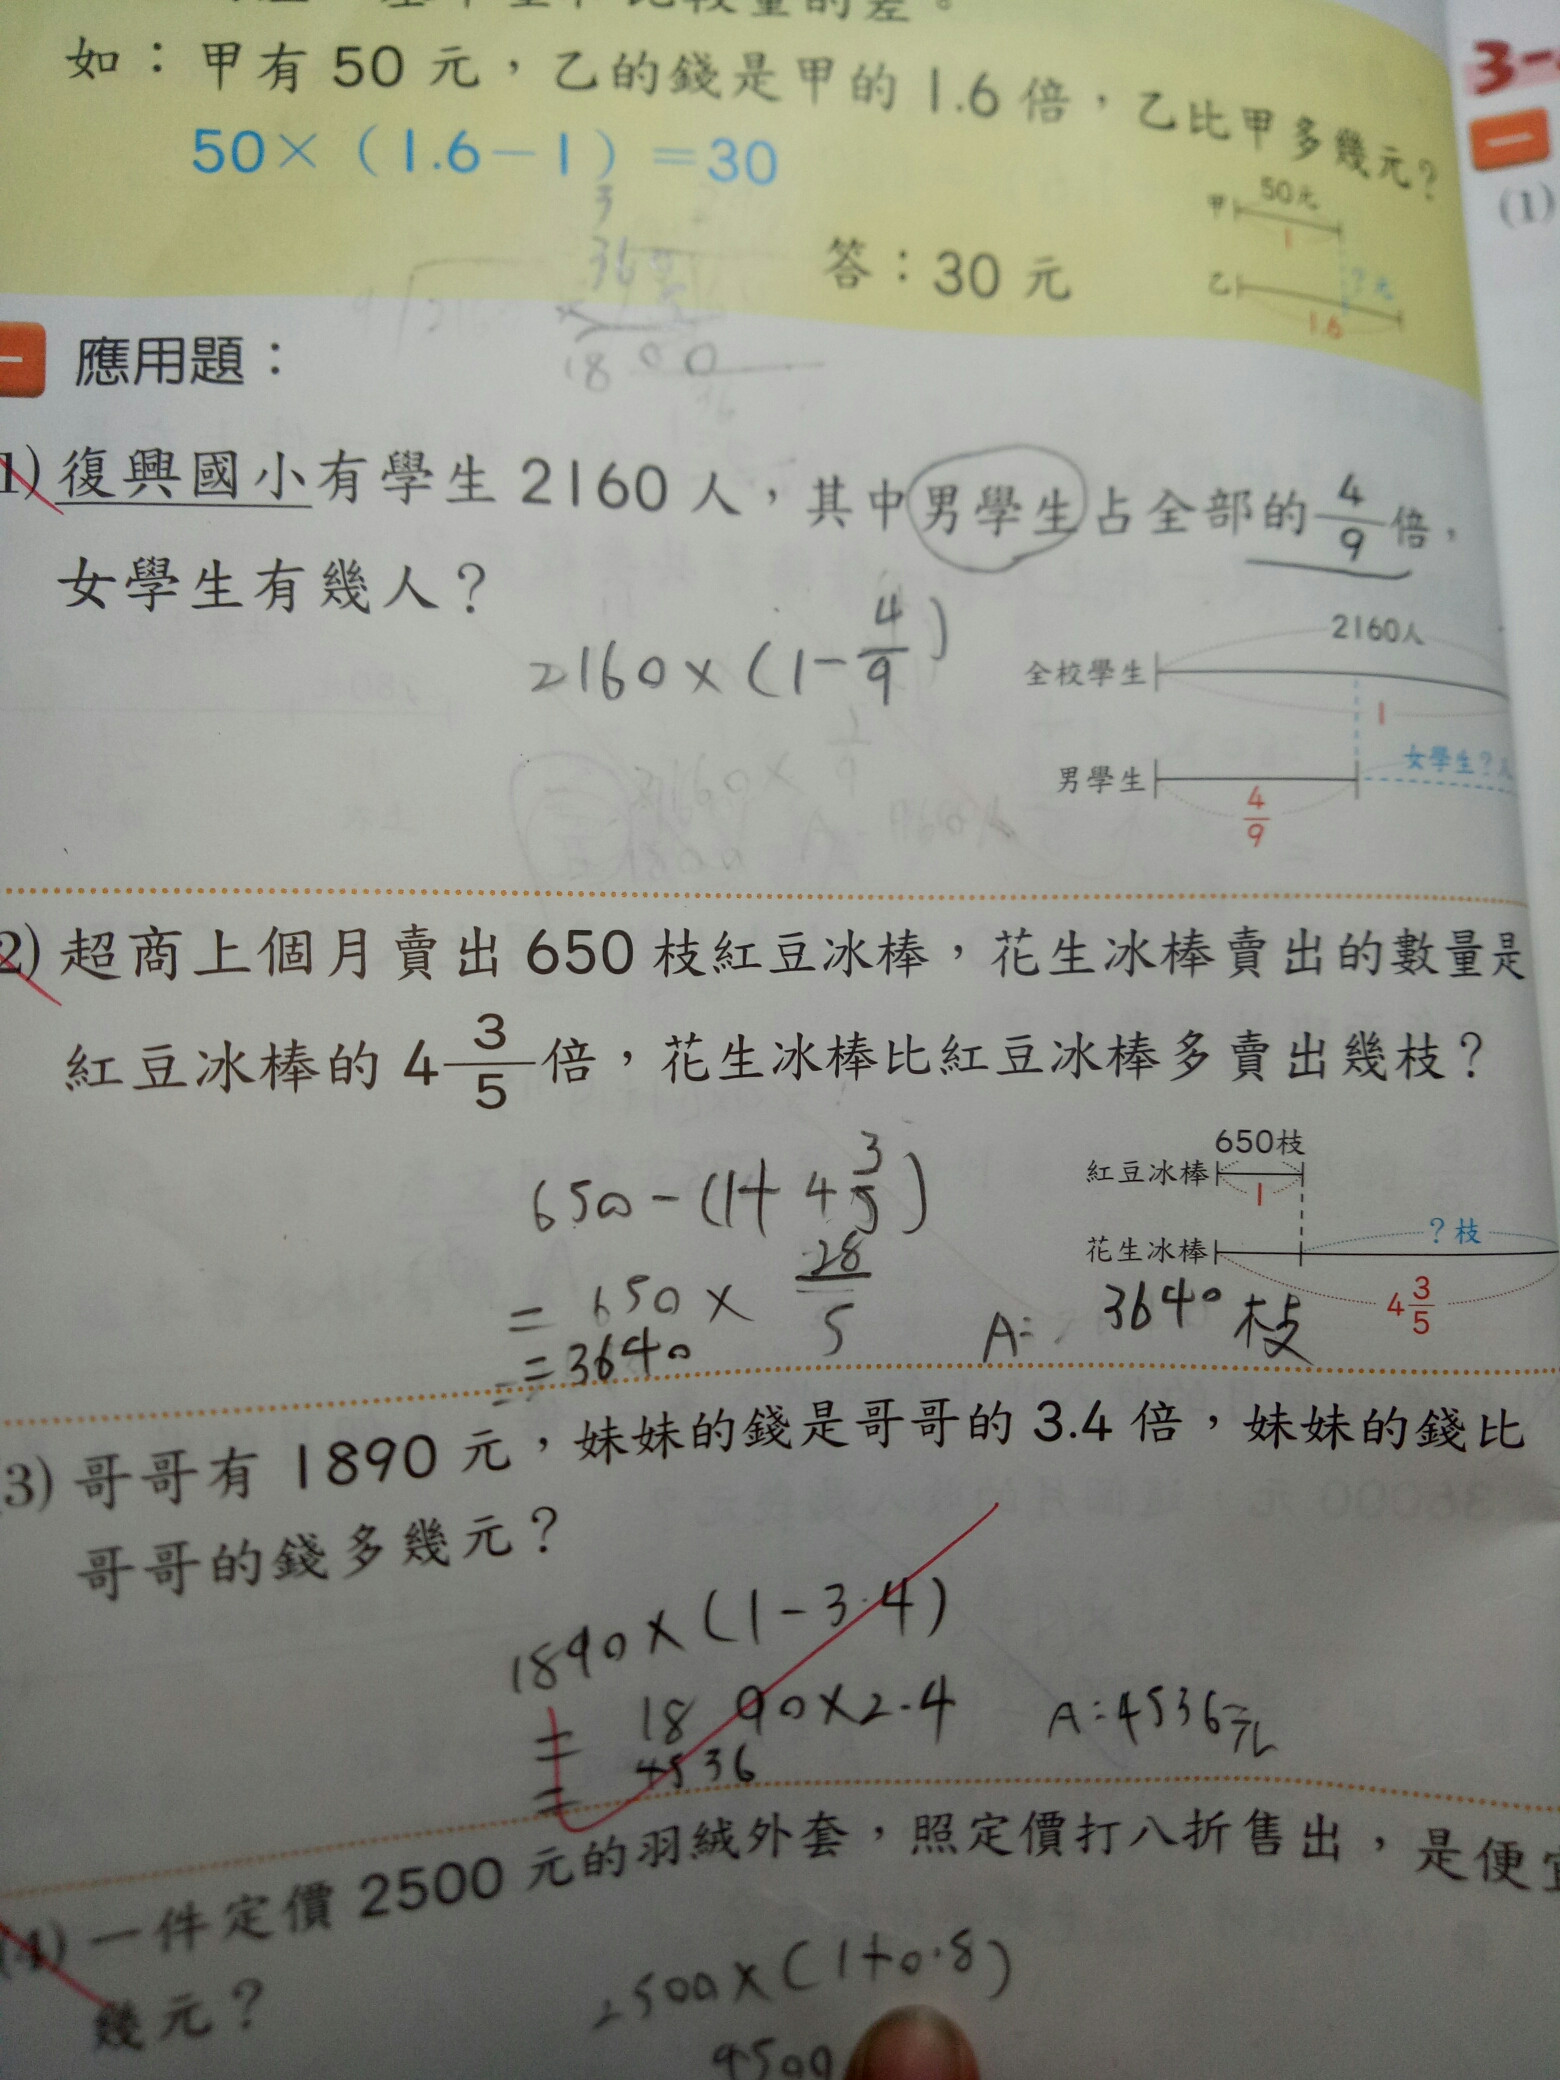 如：甲有 50 元，乙的錢是甲的 1.6 倍，乙比甲多幾元？
50×（1.6－1）＝30
答：30 元
50元
甲
1
乙
？元
1.6
3-
一
(1)
應用題：
1) 復興國小有學生 2160 人，其中男學生占全部的 4/9 倍，
女學生有幾人？
2160×(1-4/9)
2160人
全校學生
1
女學生？人
男學生
4/9
2) 超商上個月賣出 650 枝紅豆冰棒，花生冰棒賣出的數量是
紅豆冰棒的 4 3/5 倍，花生冰棒比紅豆冰棒多賣出幾枝？
650-(1+4 3/5)
=650×28/5
=3640
A: 3640 枝
650枝
紅豆冰棒
1
？枝
花生冰棒
4 3/5
3) 哥哥有 1890 元，妹妹的錢是哥哥的 3.4 倍，妹妹的錢比
哥哥的錢多幾元？
1890×(1-3.4)
=1890×2.4
=4536
A:4536元
(4) 一件定價 2500 元的羽絨外套，照定價打八折售出，是便宜
幾元？
2500×(1+0.8)